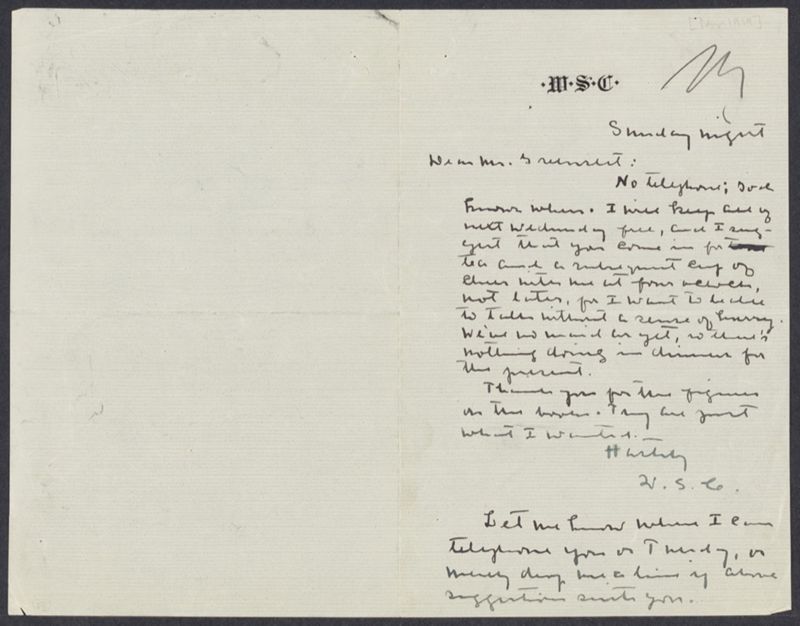 ·W·S·C·
Sunday night
Dear Mr. Greenslet:
No telephone; God
knows when. I will keep all of
next Wednesday free, and I sug-
gest that you come in for
tea and a subsequent cup of
cheer with me at four o'clock,
not later, for I want to be able
to talk without a sense of hurry.
We've no maid as yet, so there's
nothing doing in dinners for
the present.
Thank you for the figures
on the books. They are just
what I wanted.
Hastily
W. S. C.
Let me know where I can
telephone you on Tuesday, or
merely drop me a line if above
suggestion suits you.